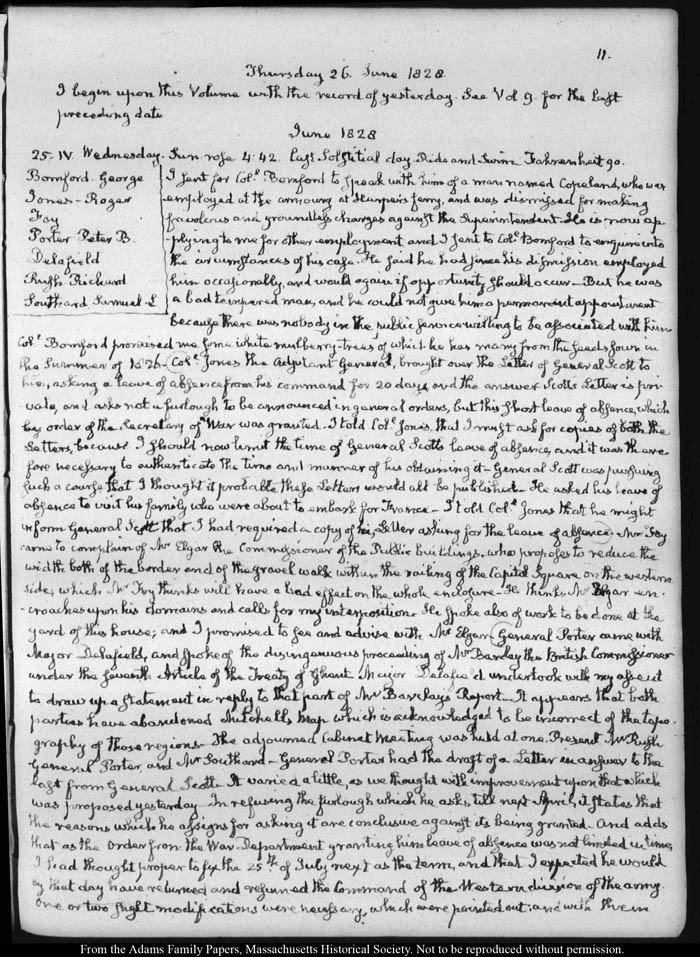 11.
Thursday 26. June 1828.
I begin upon this Volume with the record of yesterday. See Vol 9. for the last
preceding date
June 1828
25. IV. Wednesday. Sun rose 4:42. Last Solstitial day. Ride and Swim. Fahrenheit 90.
Bomford - George
Jones - Roger
Foy
Porter Peter B.
Delafield
Rush Richard
Southard Samuel L
I sent for Coll. Bomford to speak with him of a man named Copeland, who was
employed at the armoury at Harper's ferry, and was dismissed for making
frivolous and groundless charges against the Superintendent. He is now ap-
plying to me for other employment and I sent to Coll. Bomford to enquire into
the circumstances of his case. He said he had since his dismission employed
him occasionally, and would again if opportunity should occur - But he was
a bad tempered man, and he could not give him a permanent appointment
because there was nobody in the public service willing to be associated with him
Coll. Bomford promised me some white mulberry-trees, of which he has many from the seeds sown in
the Summer of 1826 - Coll. Jones the Adjutant General, brought over the Letter of General Scott to
him, asking a leave of absence from his command for 20 days, and the answer. Scotts Letter is pri-
vate, and asks not a furlough to be announced in general orders, but this short leave of absence, which
by order of the Secretary of War was granted. I told Coll. Jones, that I must ask for copies of both the
Letters, because I should now limit the time of General Scotts leave of absence, and it was there-
fore necessary to authenticate the time and manner of his obtaining it - General Scott was pursuing
such a course that I thought it probable these Letters would all be published - He asked his leave of
absence to visit his family, who were about to embark for France - I told Coll. Jones that he might
inform General Scott that I had required a copy of his Letter asking for the leave of absence - Mr Foy
came to complain of Mr Elgar the Commissioner of the Public buildings, who proposes to reduce the
width both of the border and of the gravel walk within the railing of the Capitol Square on the western
side; which Mr. Foy thinks will have a bad effect on the whole enclosure - He thinks Mr Elgar en-
croaches upon his domains and calls for my interposition - He spoke also of work to be done at the
yard of this house; and I promised to see and advise with Mr Elgar. General Porter came with
Major Delafield, and spoke of the disingenuous proceeding of Mr Barclay the British Commissioner
under the seventh Article of the Treaty of Ghent. Major Delafield undertook with my assent
to draw up a statement in reply to that part of Mr Barclay's Report - It appears that both
parties have abandoned Mitchells Map which is acknowledged to be incorrect of the topo-
graphy of those regions - The adjourned Cabinet Meeting was held at one. Present Mr Rush
General Porter, and Mr Southard - General Porter had the draft of a Letter in answer to the
last from General Scott. It varied a little, as we thought with improvement upon that which
was proposed yesterday - In refusing the furlough which he asks, till next April, it states that
the reasons which he assigns for asking it are conclusive against its being granted. And adds
that as the Order from the War Department granting him leave of absence was not limited in time,
I had thought proper to fix the 25th. of July next as the term, and that I expected he would
by that day have returned and resumed the Command of the Western division of the army.
One or two slight modifications were necessary, which were pointed out; and with them
From the Adams Family Papers, Massachusetts Historical Society. Not to be reproduced without permission.